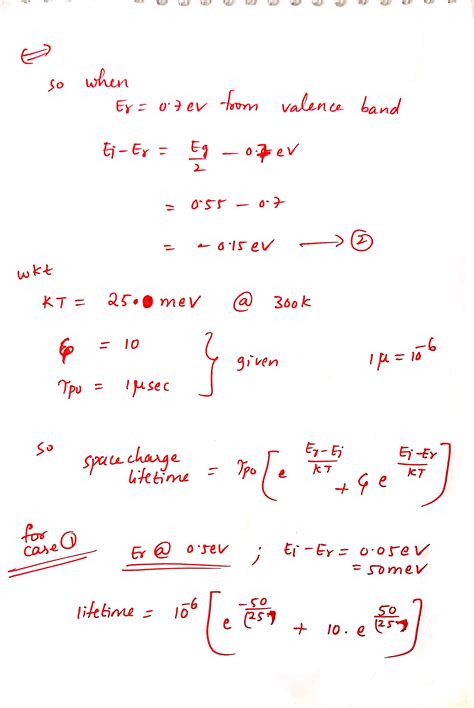 ⇒
so when
Er = 0.7 eV from valence band
Ei - Er = Eg/2 - 0.7 eV
= 0.55 - 0.7
= -0.15 eV ⟶ ②
wkt
KT = 25.0 meV @ 300k
ς = 10
τpo = 1 μsec } given 1μ = 10^-6
so space charge lifetime = τpo [ e^((Er-Ei)/KT) + ς e^((Ei-Er)/KT) ]
for case ① Er @ 0.5eV ; Ei - Er = 0.05eV
= 50meV
lifetime = 10^-6 [ e^(-50/(25)) + 10. e^(50/(25)) ]